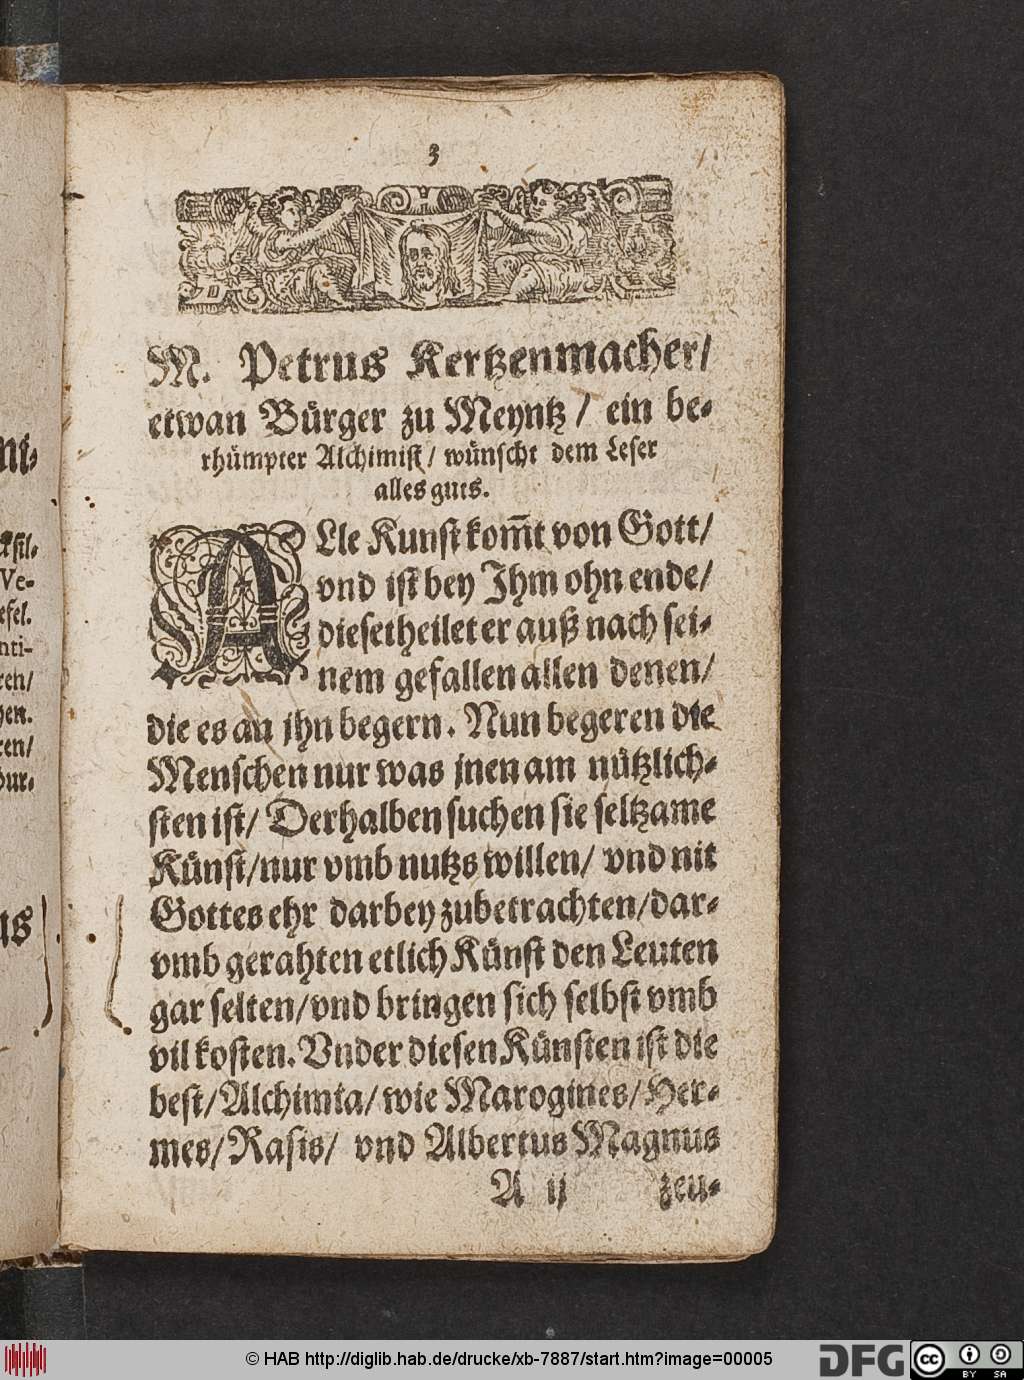 3
M. Petrus Kertzenmacher/
etwan Bürger zu Meyntz / ein be-
rhümpter Alchimist / wünscht dem Leser
alles guts.
ALle Kunst kom̃t von Gott/
vnd ist bey Ihm ohn ende/
diese theilet er auß nach sei-
nem gefallen allen denen/
die es an jhn begern. Nun begeren die
Menschen nur was jnen am nützlich-
sten ist/ Derhalben suchen sie seltzame
Künst/nur vmb nutzs willen/ vnd nit
Gottes ehr darbey zubetrachten/dar-
vmb gerahten etlich Künst den Leuten
gar selten/vnd bringen sich selbst vmb
vil kosten. Vnder diesen Künsten ist die
best/Alchimia/wie Marogines/Her-
mes/Rasis/ vnd Albertus Magnus
A ij zeu-
© HAB http://diglib.hab.de/drucke/xb-7887/start.htm?image=00005
DFG
cc BY SA